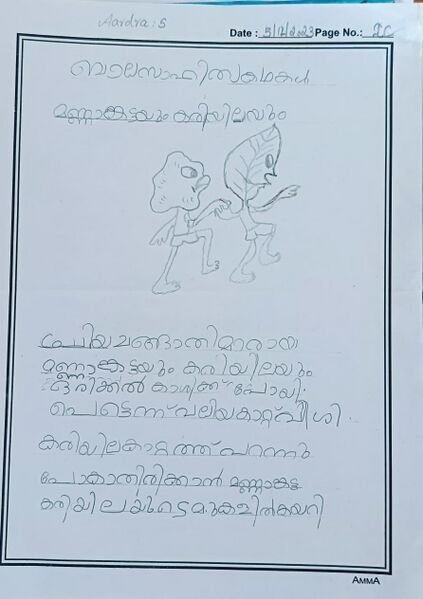 Aardra: S
Date : 5/12/2023 Page No.: IC
ബാലസാഹിത്യകഥകൾ
മണ്ണാങ്കട്ടയും കരിയിലയും
പ്രിയ ചങ്ങാതിമാരായ
മണ്ണാങ്കട്ടയും കരിയിലയും
ഒരിക്കൽ കാശിക്ക് പോയി.
പെട്ടെന്ന് വലിയകാറ്റ് വീശി.
കരിയില കാറ്റത്ത് പറന്നു
പോകാതിരിക്കാൻ മണ്ണാങ്കട്ട
കരിയിലയുടെ മുകളിൽ കയറി
AMMA